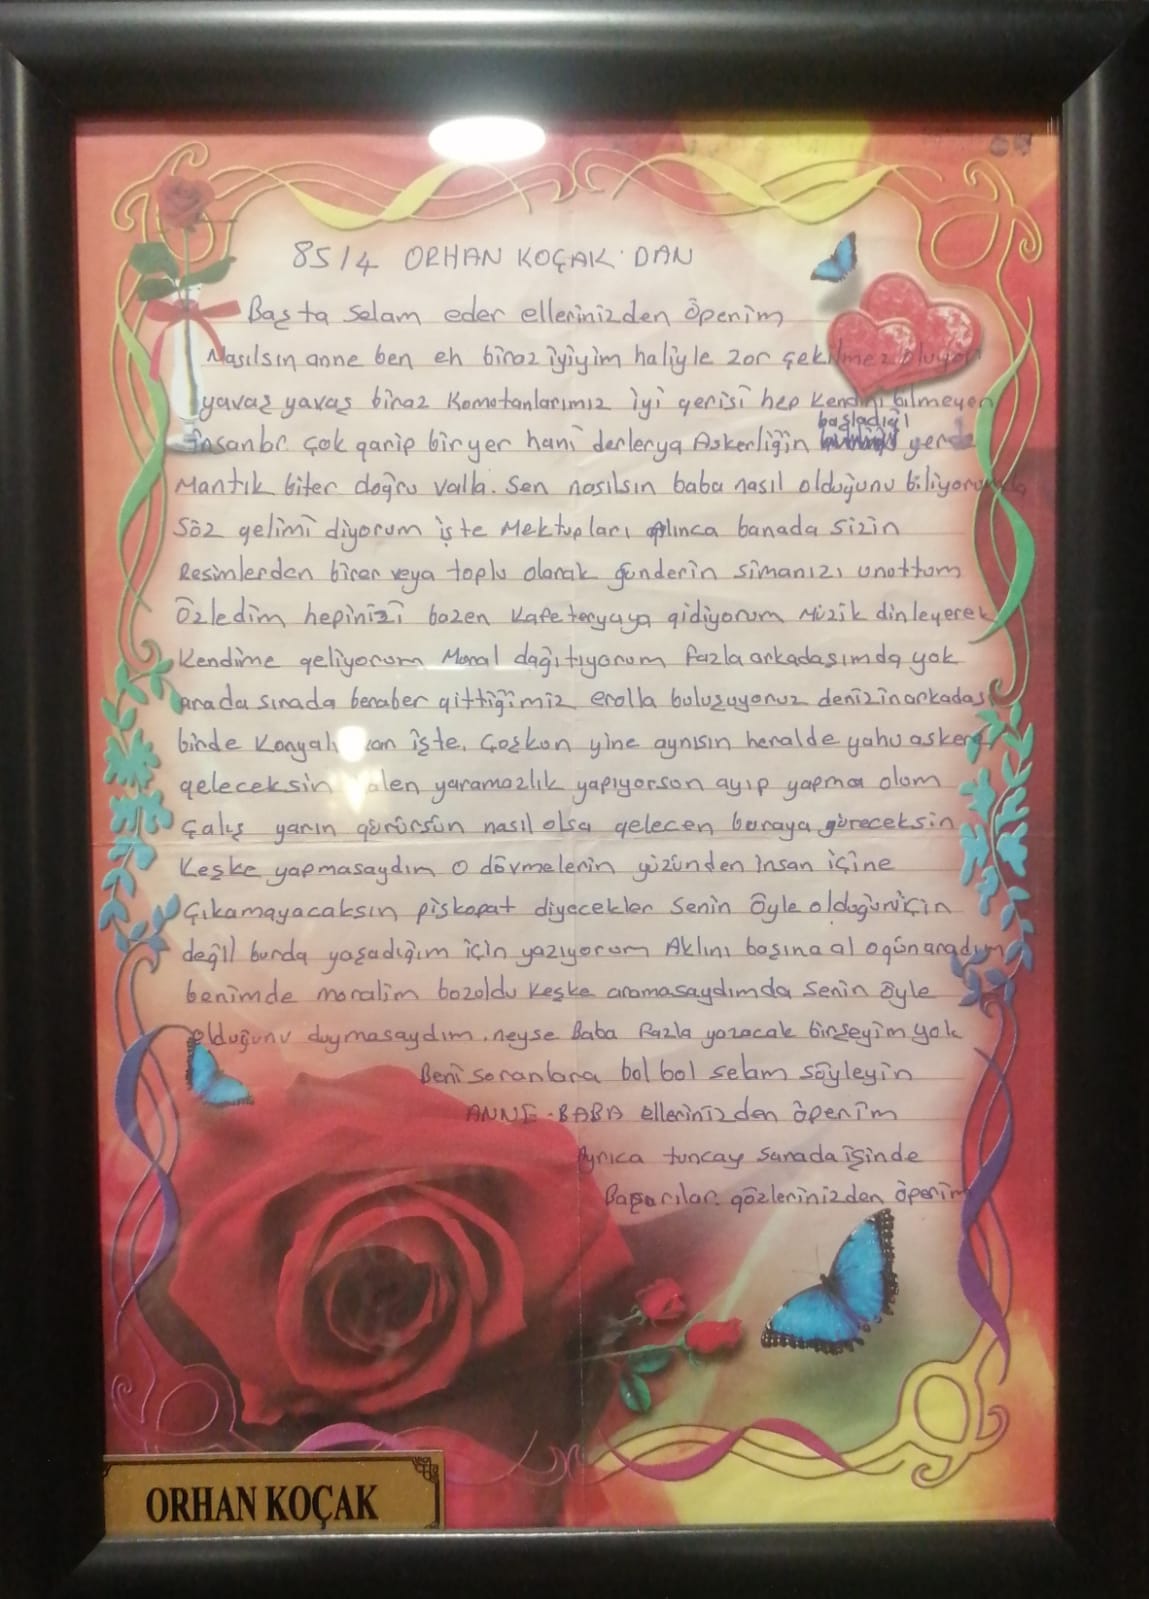 85/4 ORHAN KOÇAK'DAN
Başta selam eder ellerinizden öperim
Nasılsın anne ben eh biraz iyiyim haliyle zor çekilmez oluyor
yavaş yavaş biraz Komotanlarımız iyi gerisi hep kendini bilmeyen
insanlar çok garip bir yer hani derlerya Askerliğin başladığı yerde
Mantık biter doğru valla. Sen nasılsın baba nasıl olduğunu biliyorumda
Söz gelimi diyorum işte Mektupları Alınca banada sizin
Resimlerden birer veya toplu olarak gönderin simanızı unottum
Özledim hepinizi bazen Kafeteryaya gidiyorum Müzik dinleyerek
Kendime geliyorum Moral dağıtıyorum fazla arkadaşımda yok
arada sırada beraber gittiğimiz erolla buluşuyoruz denizin arkadaşı
birde Konyalı işte. Coşkun yine aynısın heralde yahu askere
geleceksin yaramazlık yapıyorsun ayıp yapma olum
Çalış yarın görürsün nasıl olsa gelecen buraya göreceksin
Keşke yapmasaydım o dövmelerin yüzünden insan içine
Çıkamayacaksın piskopat diyecekler Senin Öyle olduğun için
değil burda yaşadığım için yazıyorum Aklını başına al ogün aradım
benimde moralim bozoldu keşke aramasaydımda senin öyle
olduğunu duymasaydım. neyse Baba fazla yazacak birşeyim yok
Beni soranlara bol bol selam söyleyin
ANNE-BABA ellerinizden öperim
Ayrıca tuncay sanada işinde
Başarılar. gözlerinizden öperim
ORHAN KOÇAK